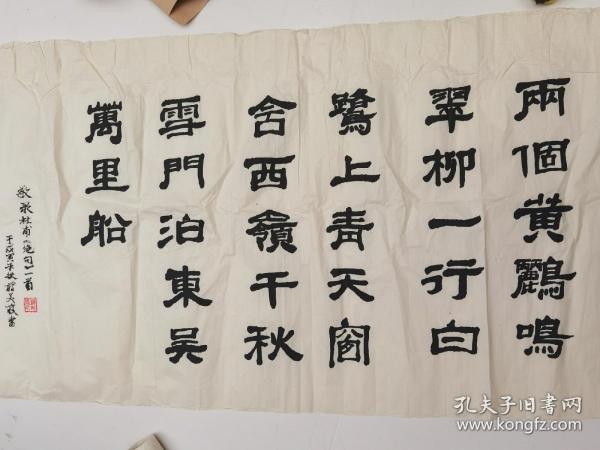 兩個黃鸝鳴
翠柳一行白
鷺上青天窗
含西嶺千秋
雪門泊東吳
萬里船
敬录杜甫《绝句》一首
孔夫子旧书网
www.kongfz.com